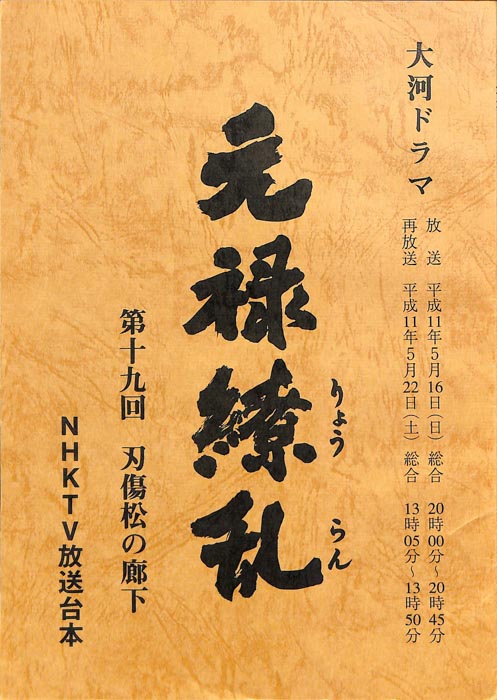 大河ドラマ
放送 平成11年5月16日(日) 総合 20時00分~20時45分
再放送 平成11年5月22日(土) 総合 13時05分~13時50分
元禄繚乱
りょうらん
第十九回 刃傷松の廊下
NHKTV放送台本